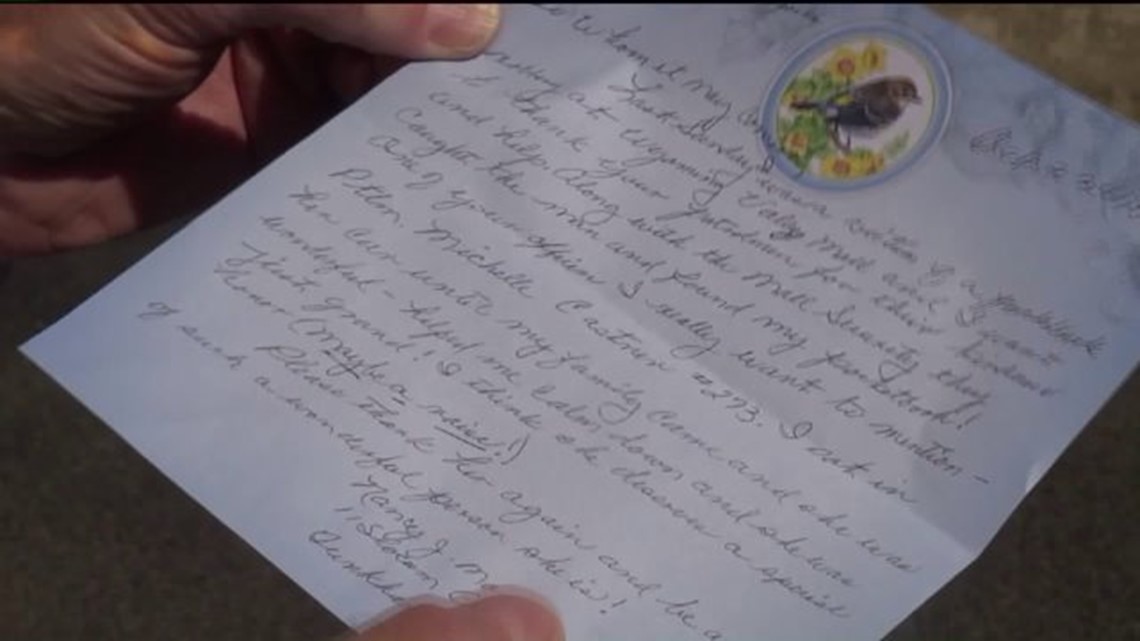 Whom it may
Last Sunday I was a victim of a pocketbook
at Wyoming Valley Mall and I want
to thank your for their
and help. Along with the Mall Security they
caught the man and found my pocketbook!
One of your officers I really want to mention -
Michelle #273. I sat in
her car until my family came and she was
wonderful - helped me calm down and she was
just grand! I think she deserves a special
honor (maybe a raise!)
Please thank her again and
of such a wonderful person she is!
Nancy J.